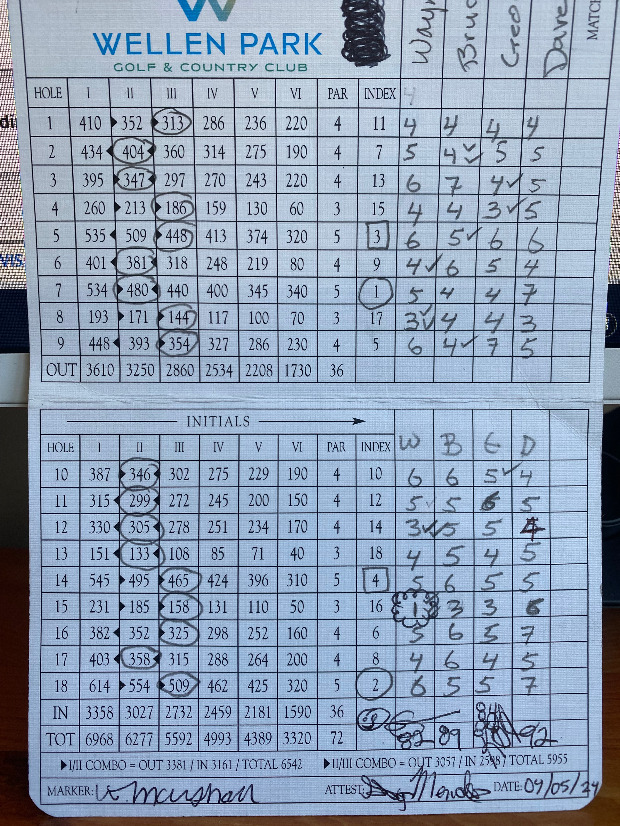 WELLEN PARK
GOLF & COUNTRY CLUB
Wayn Bruc Greg Dave MATCH
HOLE I II III IV V VI PAR INDEX 4
1 410 352 313 286 236 220 4 11 4 4 4 4
2 434 404 360 314 275 190 4 7 5 4 5 5
3 395 347 297 270 243 220 4 13 6 7 4 5
4 260 213 186 159 130 60 3 15 4 4 3 5
5 535 509 448 413 374 320 5 3 6 5 6 6
6 401 381 318 248 219 80 4 9 4 6 5 4
7 534 480 440 400 345 340 5 1 5 4 4 7
8 193 171 144 117 100 70 3 17 3 4 4 3
9 448 393 354 327 286 230 4 5 6 4 7 5
OUT 3610 3250 2860 2534 2208 1730 36
INITIALS
HOLE I II III IV V VI PAR INDEX W B G D
10 387 346 302 275 229 190 4 10 6 6 5 4
11 315 299 272 245 200 150 4 12 5 5 6 5
12 330 305 278 251 234 170 4 14 3 5 5 4
13 151 133 108 85 71 40 3 18 4 5 4 5
14 545 495 465 424 396 310 5 4 5 6 5 5
15 231 185 158 131 110 50 3 16 1 3 3 6
16 382 352 325 298 252 160 4 6 5 6 5 7
17 403 358 315 288 264 200 4 8 4 6 4 5
18 614 554 509 462 425 320 5 2 6 5 5 7
IN 3358 3027 2732 2459 2181 1590 36 84
TOT 6968 6277 5592 4993 4389 3320 72 82 89 92
▶I/II COMBO = OUT 3381 / IN 3161 / TOTAL 6542 ▶II/III COMBO = OUT 3057 / IN 2598 / TOTAL 5955
MARKER: W Marshall ATTEST: DATE: 09/05/24